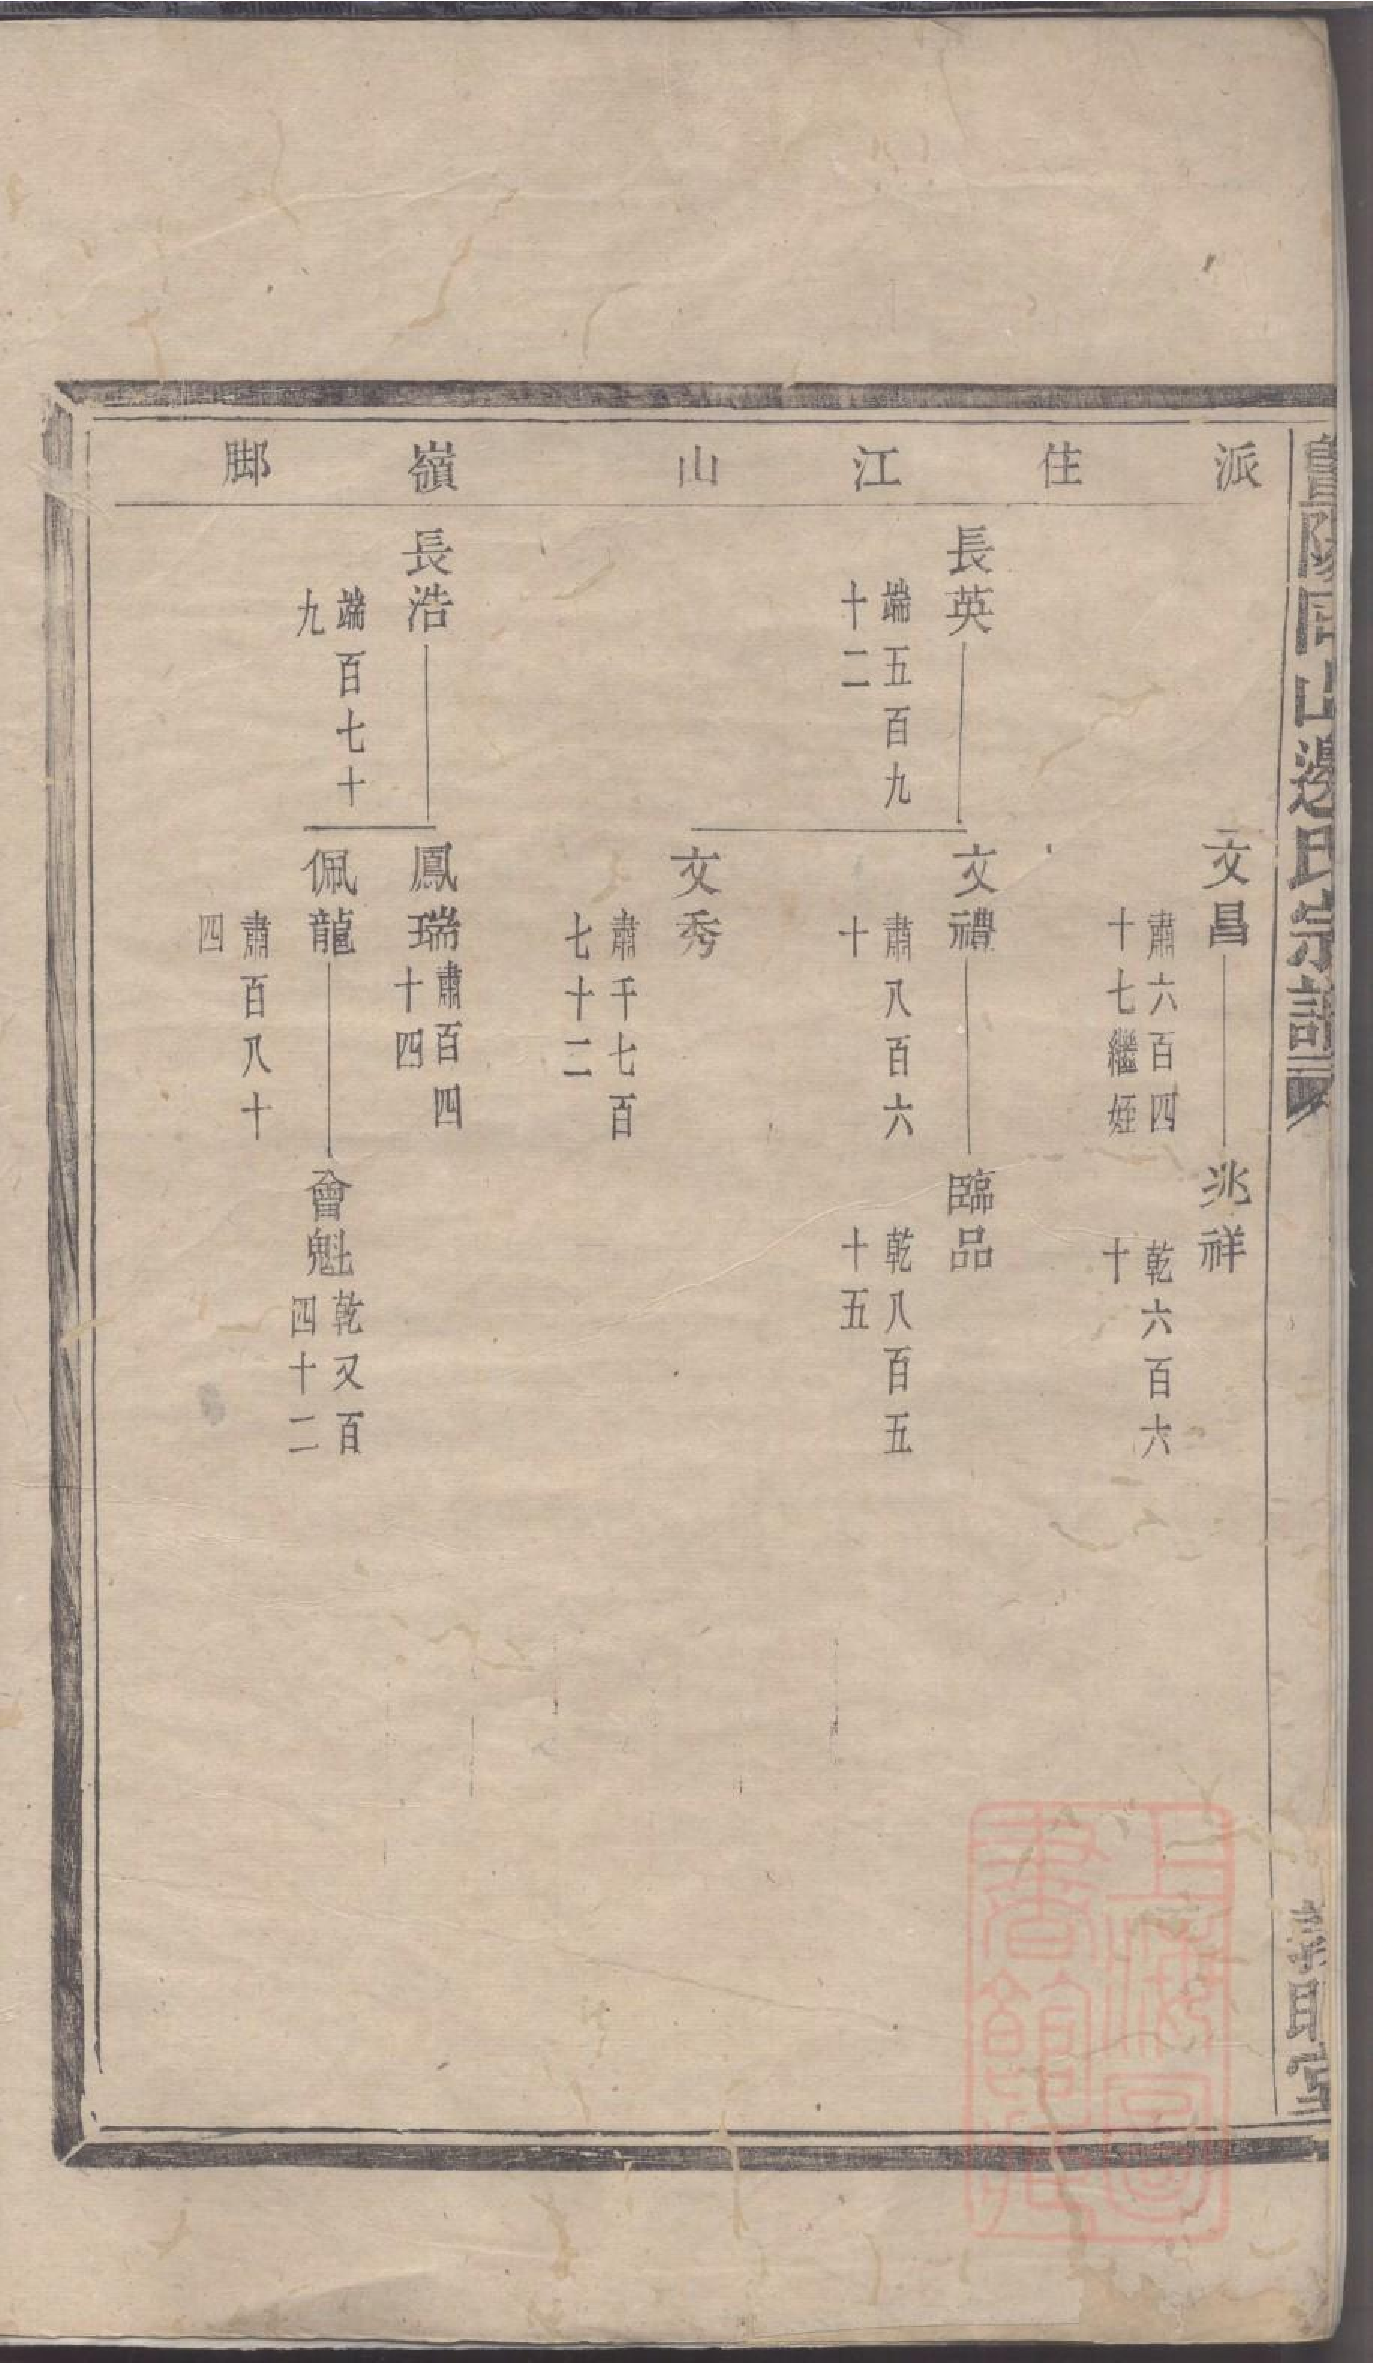 暨陽同山邊氏宗譜
義門堂
派住江山嶺脚
文昌
肅六百四
十七繼姪
兆祥
乾六百六
十
長英
端五百九
十二
文禮
肅八百六
十
臨品
乾八百五
十五
文秀
肅千七百
七十二
長浩
端百七十
九
鳳瑞
肅百四
十四
佩龍
肅百八十
四
會魁
乾又百
四十二
上海圖
書館藏